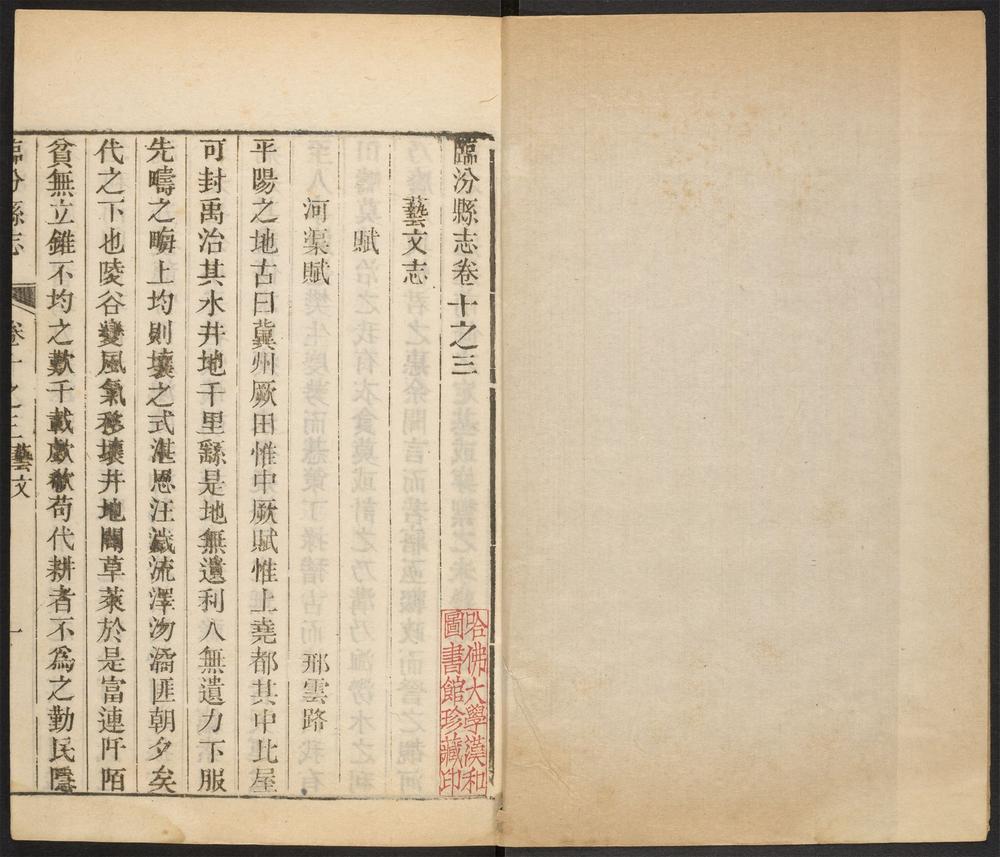 臨汾縣志卷十之三
藝文志
賦
河渠賦 邢雲路
平陽之地古曰冀州厥田惟中厥賦惟上堯都其中比屋
可封禹治其水井地千里繇是地無遺利人無遺力下服
先疇之畮上均則壤之式湛恩汪濊流澤沕潏匪朝夕矣
代之下也陵谷變風氣移壞井地闢草萊於是富連阡陌
貧無立錐不均之歎千載歔欷苟代耕者不爲之勤民隱
臨汾縣志 卷十之三藝文 一
哈佛大學漢和
圖書館珍藏印